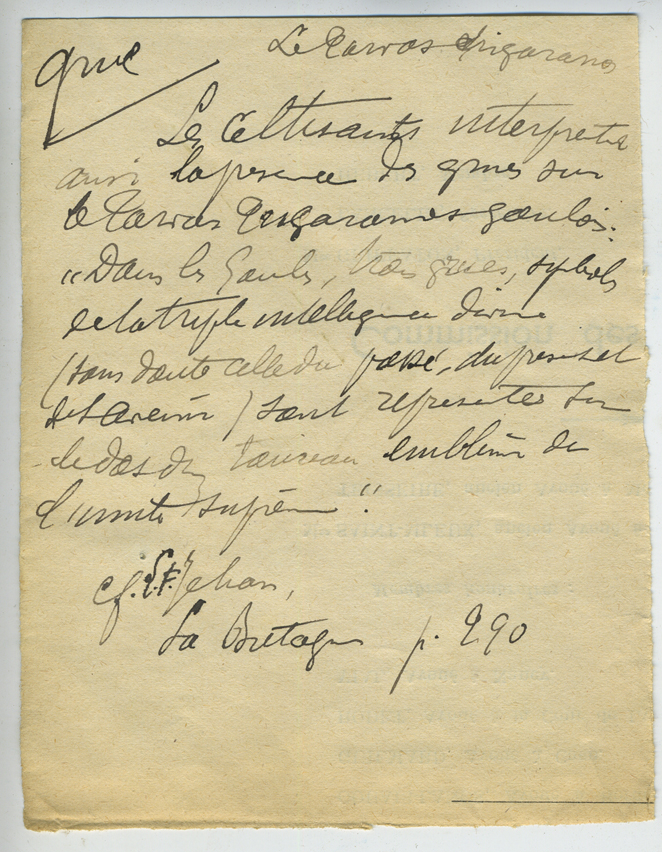 grue
Le Tarvos Trigaranos
Les Celtisants interprètent
ainsi la présence des grues sur
le Tarvos Trigaranos gaulois.
"Dans les Gaules, trois grues, symboles
de la triple intelligence divine
(sans doute celle du passé, du présent et
de l'avenir) sont représentées sur
le dos du taureau emblème de
l'unité suprême."
cf. L.F. Jehan,
La Bretagne p. 290